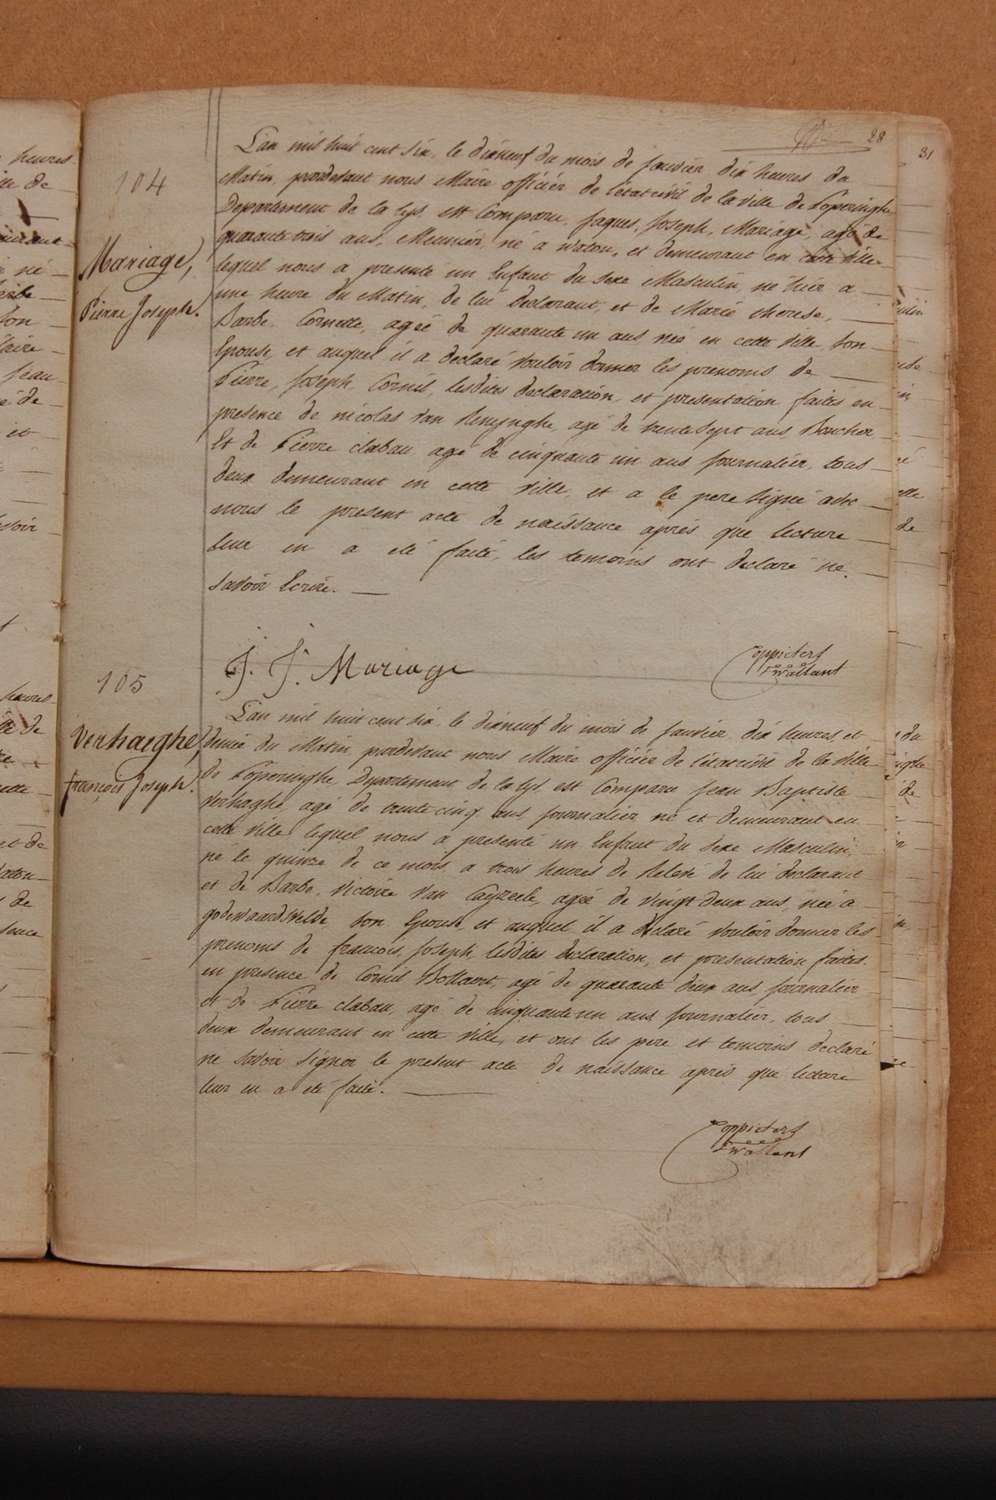 28
31
104
Mariage,
Pierre Joseph.
L'an mil huit cent six, le dixneuf du mois de janvier dix heures du
Matin pardevant nous Maire officier de l'état civil de la ville de Poperinghe
Departement de la Lys est Comparu, Jaques, Joseph, Mariage, agé de
quarante trois ans, Meunier, né a watou, et Demeurant en cette ville
lequel nous a presenté un Enfant du sexe Masculin, né hier a
une heure du Matin, de lui Declarant, et de Marie therese,
Barbe, Cornette, agée de quarante un ans née en cette ville son
Epouse, et auquel il a declaré vouloir donner les prenoms de
Pierre, Joseph Cornil, lesdites declaration, et presentation faites en
presence de nicolas van Renynghe agé de trente sept ans Boucher
Et de Pierre clabau agé de cinquante un ans journalier, tous
deux demeurant en cette ville, et a le pere signé avec
nous le present acte de naissance après que lecture
leur en a été faite, les temoins ont declaré ne
savoir Ecrire.
J. J. Mariage
105
Verhaeghe,
françois Joseph.
L'an mil huit cent six, le dixneuf du mois de janvier dix heures et
demie du Matin pardevant nous Maire officier de l'état civil de la ville
de Poperinghe Departement de la Lys, est Comparu Jean Baptiste
Verhaghe agé de trente cinq ans journalier né et demeurant en
cette ville lequel nous a presenté un Enfant du sexe Masculin,
né le quinze de ce mois a trois heures de Relevée de lui declarant
et de Barbe, Victoire Van Cayzeele, agée de vingt deux ans, née a
godewaardsvelde son Epouse, et auquel il a declaré vouloir donner les
prenoms de francois, Joseph, lesdites declaration, et presentation faites
en presence de Cornil Bollaert, agé de quarante deux ans, journalier
et de Pierre clabau, agé de cinquante un ans journalier, tous
deux demeurant en cette ville, et ont les pere et temoins declaré
ne savoir signer le present acte de naissance après que lecture
leur en a été faite.